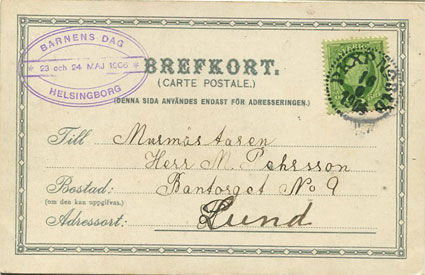 BARNENS DAG
23 och 24 MAJ 1906
HELSINGBORG
BREFKORT.
(CARTE POSTALE.)
(DENNA SIDA ANVÄNDES ENDAST FÖR ADRESSERINGEN.)
Till Murmästaren
Herr M. Pehrsson
Bostad: Bantorget No 9
(om den kan uppgifvas.)
Adressort: Lund